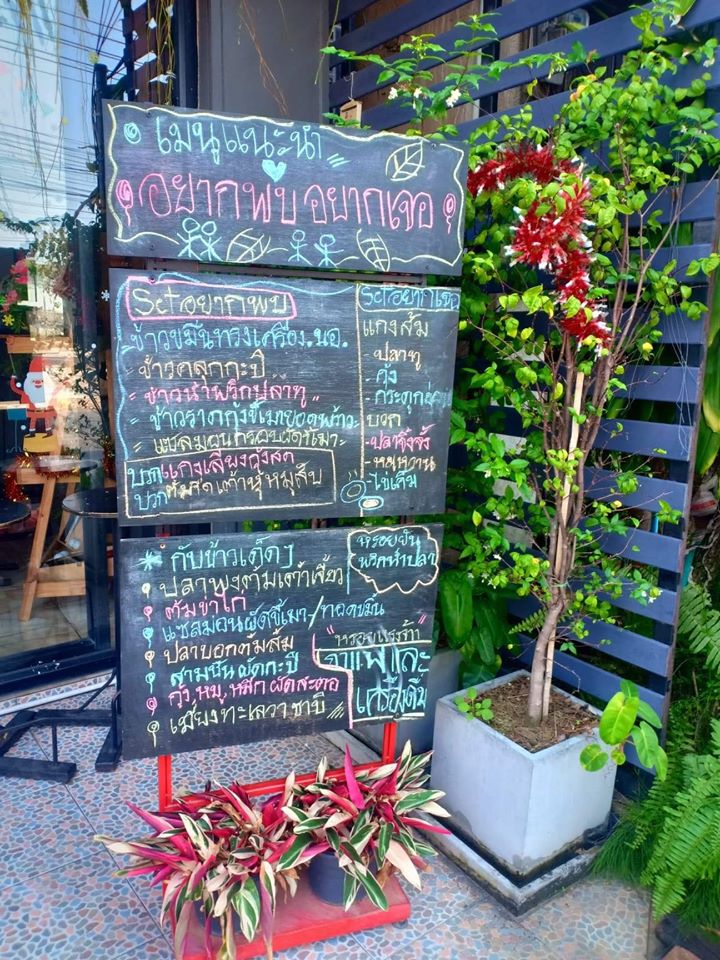 เมนูแนะนำ
อยากพบ อยากเจอ
Set อยากพบ
ข้าวขมิ้นทรงเครื่อง.นอ.
ข้าวคลุกกะปิ
ข้าวน้ำพริกปลาทู
ข้าวราดกุ้งขี้เมายอดพร้าว
แซลมอนกรอบผัดขี้เมา
บวกแกงเลียงกุ้งสด
บวกต้มจืดเต้าหู้หมูสับ
Set อยากเจอ
แกงส้ม
- ปลาทู
- กุ้ง
- กระดูก
บวก
- ปลาจิ้งจั้ง
- หมูหวาน
- ไข่เค็ม
กับข้าวเด็ดๆ
ปลาพงต้มเต้าเจี้ยว
ต้มขาไก่
แซลมอนผัดขี้เมา/ทอดขมิ้น
ปลาบอกต้มส้ม
สามชั้นผัดกะปิ
กุ้ง หมู หมึก ผัดสะตอ
เมี่ยงทะเลวาซาบิ
หรอยยัน
พริกน้ำปลา
"หรอยแรงก้า"
กาแฟและ
เครื่องดื่ม